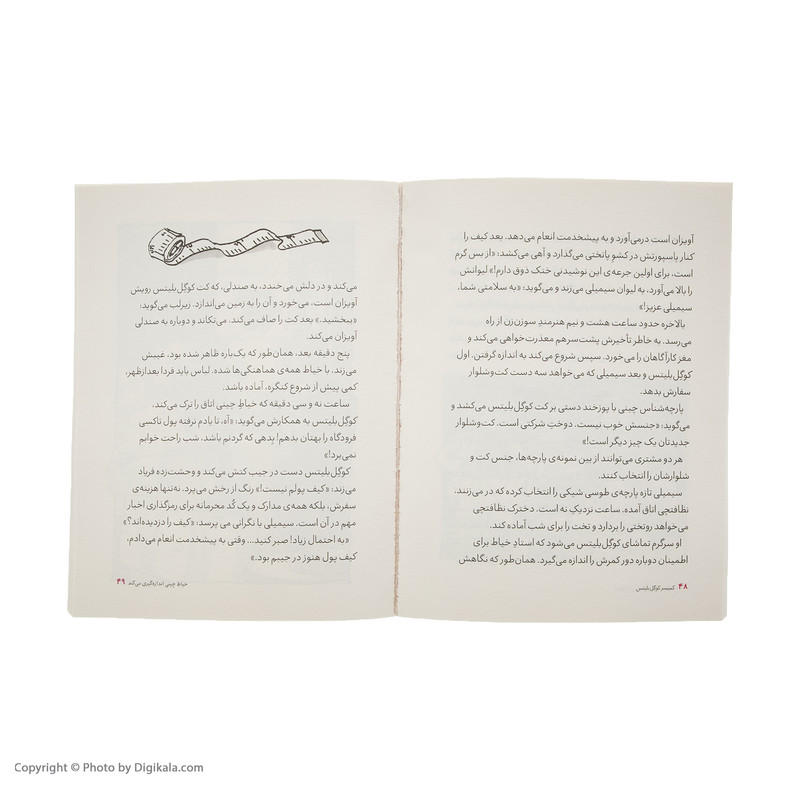 آویزان است درمی‌آورد و به پیشخدمت انعام می‌دهد. بعد کیف را
کنار پاسپورتش در کشوِ پاتختی می‌گذارد و آهی می‌کشد: «از بس گرم
است، برای اولین جرعه‌ی این نوشیدنی خنک ذوق دارم!» لیوانش
را بالا می‌آورد، به لیوان سیمیلی می‌زند و می‌گوید: «به سلامتی شما،
سیمیلی عزیز!»
بالاخره حدود ساعت هشت و نیم هنرمندِ سوزن‌زن از راه
می‌رسد. به خاطر تأخیرش پشت‌سرهم معذرت‌خواهی می‌کند و
مغز کارآگاهان را می‌خورد. سپس شروع می‌کند به اندازه گرفتن. اول
کوگِل‌بلیتس و بعد سیمیلی که می‌خواهد سه دست کت‌وشلوار
سفارش بدهد.
پارچه‌شناس چینی با پوزخند دستی بر کت کوگِل‌بلیتس می‌کشد و
می‌گوید: «جنسش خوب نیست. دوختِ شرکتی است. کت‌وشلوار
جدیدتان یک چیز دیگر است!»
هر دو مشتری می‌توانند از بین نمونه‌ی پارچه‌ها، جنس کت و
شلوارشان را انتخاب کنند.
سیمیلی تازه پارچه‌ی طوسی شیکی را انتخاب کرده که در می‌زنند.
نظافتچی اتاق آمده. ساعت نزدیکِ نه است. دخترک نظافتچی
می‌خواهد روتختی را بردارد و تخت را برای شب آماده کند.
او سرگرم تماشای کوگِل‌بلیتس می‌شود که استادِ خیاط برای
اطمینان دوباره دور کمرش را اندازه می‌گیرد. همان‌طور که نگاهش
۴۸ کمیسر کوگِل‌بلیتس
می‌کند و در دلش می‌خندد، به صندلی، که کت کوگِل‌بلیتس رویش
آویزان است، می‌خورد و آن را به زمین می‌اندازد. زیرلب می‌گوید:
«ببخشید.» بعد کت را صاف می‌کند، می‌تکاند و دوباره به صندلی
آویزان می‌کند.
پنج دقیقه بعد، همان‌طور که یک‌باره ظاهر شده بود، غیبش
می‌زند. با خیاط همه‌ی هماهنگی‌ها شده. لباس باید فردا بعدازظهر،
کمی پیش از شروع کنگره، آماده باشد.
ساعت نه و سی دقیقه که خیاطِ چینی اتاق را ترک می‌کند،
کوگِل‌بلیتس به همکارش می‌گوید: «آه، تا یادم نرفته پول تاکسی
فرودگاه را بهتان بدهم! بِدهی که گردنم باشد، شب راحت خوابم
نمی‌برد!»
کوگِل‌بلیتس دست در جیب کتش می‌کند و وحشت‌زده فریاد
می‌زند: «کیف پولم نیست!» رنگ از رخش می‌پرد. نه‌تنها هزینه‌ی
سفرش، بلکه همه‌ی مدارک و یک کُد محرمانه برای رمزگذاری اخبار
مهم در آن است. سیمیلی با نگرانی می پرسد: «کیف را دزدیده‌اند؟»
«به احتمال زیاد! صبر کنید... وقتی به پیشخدمت انعام می‌دادم،
کیف پول هنوز در جیبم بود.»
خیاط چینی اندازه‌گیری می‌کند ۴۹
Copyright © Photo by Digikala.com